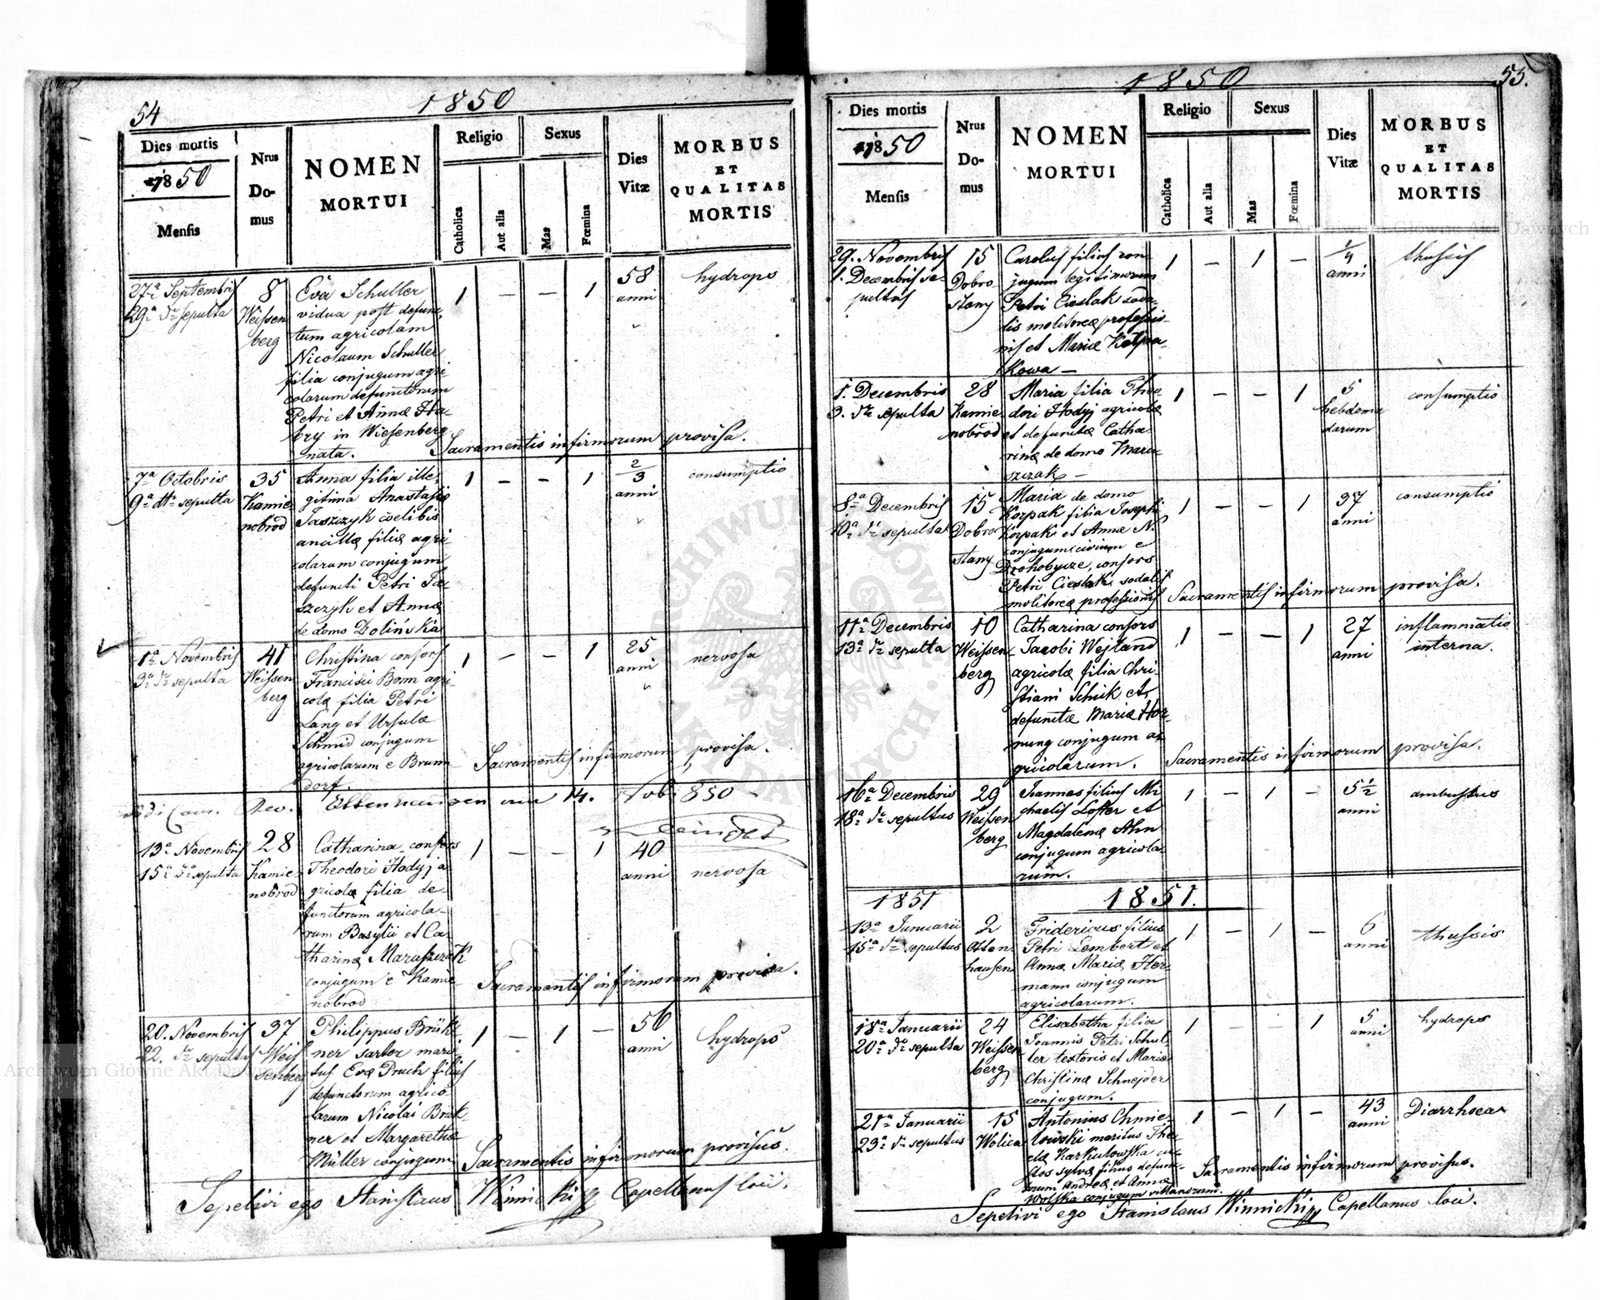 54
1850
Dies mortis
1850
Mensis
Nrus
Do-
mus
NOMEN
MORTUI
Religio
Catholica
Aut alia
Sexus
Mas
Fœmina
Dies
Vitæ
MORBUS
ET
QUALITAS
MORTIS
27a Septembris
29a dto sepulta
8
Weissen
berg
Eva Schuller
vidua post defunc
tum agricolam
Nicolaum Schuller
filia conjugum agri
colarum defunctorum
Petri et Annæ
in Wiesenberg
nata.
1 - - 1
58
anni
hydrops
Sacramentis infirmorum provisa.
7a Octobris
9a dto sepulta
35
Kamie
nobrod
Anna filia ille-
gitima Anastasiæ
Jaszczyk cœlibis
ancillæ filiæ agri
colarum conjugum
defuncti Petri Ja-
szczyk et Annæ
de domo Dolińska
1 - - 1
2/3
anni
consumptio
1a Novembris
3a dto sepulta
41
Weissen
berg
Christina consors
Francisci Bom agri
colæ filia Petri
Lang et Ursulæ
Schmid conjugum
agricolarum e Brunn
dorf.
1 - - 1
25
anni
nervosa
Sacramentis infirmorum provisa.
14. 850
13a Novembris
15a dto sepulta
28
Kamie
nobrod
Catharina consors
Theodori Hodyj a
gricolæ filia de
functorum agricola-
rum Basylii et Ca
tharinæ Maruszczak
conjugum e Kamie
nobrod
1 - - 1
40
anni
nervosa
Sacramentis infirmorum provisa.
20. Novembris
22. dto sepultus
37
Weis
senberg
Philippus Brük
ner sartor mari
tus Evæ Pruch filius
defunctorum agrico
larum Nicolai Brük
ner et Margarethæ
Müller conjugum
1 - 1 -
56
anni
hydrops
Sacramentis infirmorum provisus.
Sepelivi ego Stanislaus Winnicki Capellanus loci.
1850
55.
Dies mortis
1850
Mensis
Nrus
Do-
mus
NOMEN
MORTUI
Religio
Catholica
Aut alia
Sexus
Mas
Fœmina
Dies
Vitæ
MORBUS
ET
QUALITAS
MORTIS
29. Novembris
1. Decembris se-
pultus
15
Dobro
stany
Carolus filius con
jugum legitimorum
Petri Cieslak soda
lis molitoreæ professio-
nis et Mariæ
kowa —
1 - 1 -
1/4
anni
thussis
1. Decembris
3. dto sepulta
28
Kamie
nobrod
Maria filia Theo
dori Hodyj agricolæ
et defunctæ Catha
rinæ de domo Maru
szczak —
1 - - 1
5
hebdoma
darum
consumptio
8a Decembris
10a dto sepulta
15
Dobro
stany
Maria de domo
Korpak filia Josephi
Korpak et Annæ N.
conjugum civium e
Drohobycze, consors
Petri Cieslak sodalis
molitoreæ professionis
1 - - 1
37
anni
consumptio
Sacramentis infirmorum provisa.
11a Decembris
13a dto sepulta
10
Weissen
berg
Catharina consors
Jacobi Wejland
agricolæ filia Chri
stiani Schük et
defunctæ Mariæ Hor
nung conjugum a
gricolarum.
1 - - 1
27
anni
inflammatio
interna.
Sacramentis infirmorum provisa.
16a Decembris
18a dto sepultus
29
Weissen
berg
Joannes filius Mi
chaelis Loffer et
Magdalenæ Ahn
conjugum agricola
rum.
1 - 1 -
5 1/2
anni
ambustus
1851
1851.
13a Januarii
15a dto sepultus
2
Otten
hausen
Fridericus filius
Petri Lembert et
Annæ Mariæ Her
mann conjugum
agricolarum.
1 - 1 -
6
anni
thussis
18a Januarii
20a dto sepulta
24
Weissen
berg
Elisabetha filia
Joannis Petri Schul
ler textoris et Mariæ
Christinæ Schnejder
conjugum.
1 - - 1
5
anni
hydrops
21a Januarii
23a dto sepultus
15
Wolica
Antonius Chmie
lowski maritus The
clæ Karkulowska cu
stos sylvæ filius defunc
torum Andreæ et Annæ
Wolska conjugum villanorum.
1 - 1 -
43
anni
Diarrhoea
Sacramentis infirmorum provisus.
Sepelivi ego Stanislaus Winnicki Capellanus loci.
Archiwum Główne Akt Dawnych
Archiwum Główne Akt Dawnych
ARCHIWUM GŁÓWNE AKT DAWNYCH